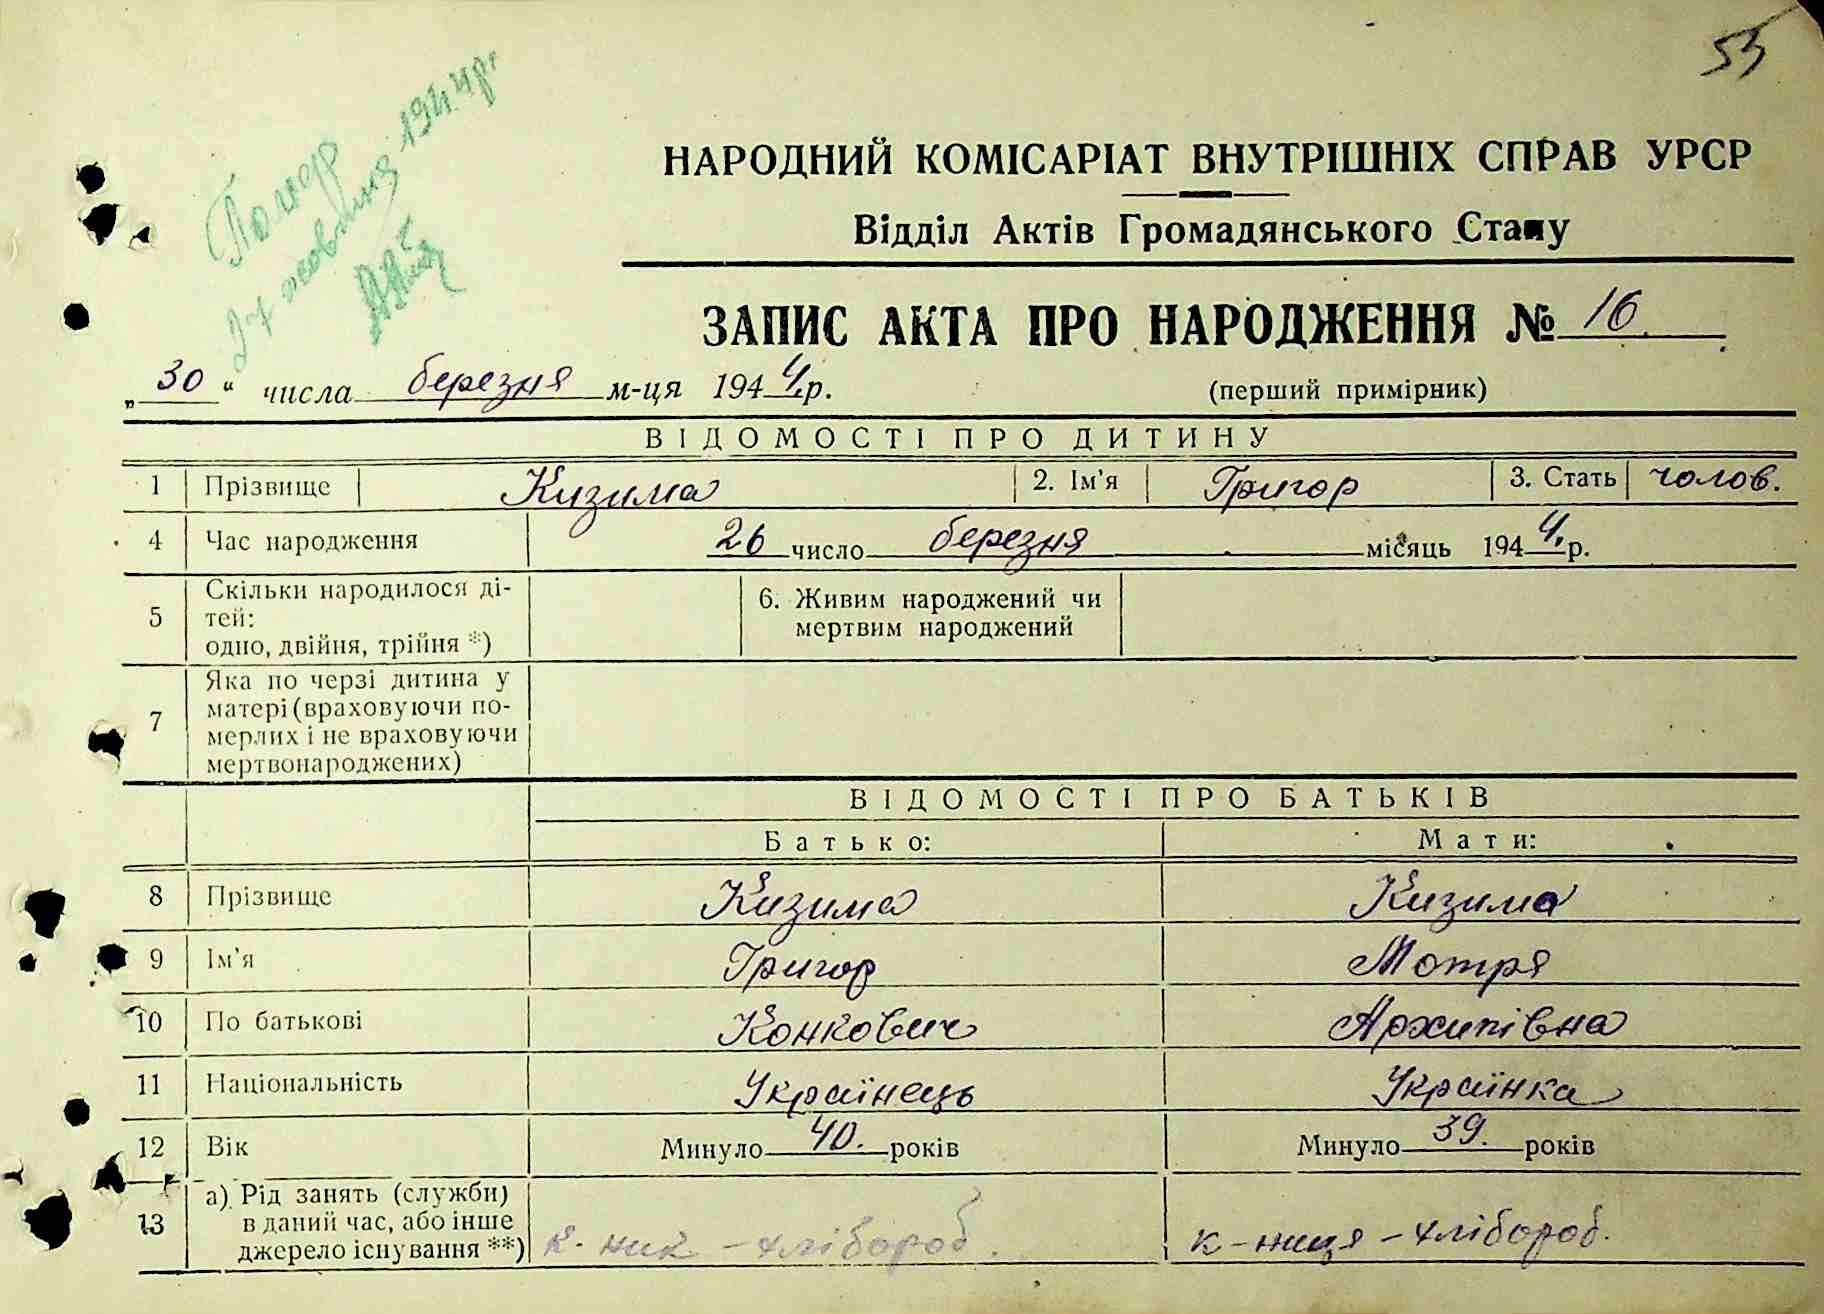 53
Помер
27 жовтня 1944 р.
НАРОДНИЙ КОМІСАРІАТ ВНУТРІШНІХ СПРАВ УРСР
Відділ Актів Громадянського Стану
ЗАПИС АКТА ПРО НАРОДЖЕННЯ № 16.
„30“ числа березня м-ця 1944 р. (перший примірник)
ВІДОМОСТІ ПРО ДИТИНУ
1 Прізвище Кизима 2. Ім'я Григор 3. Стать чолов.
4 Час народження 26 число березня місяць 1944 р.
5 Скільки народилося ді-
тей:
одно, двійня, трійня *)
6. Живим народжений чи
мертвим народжений
7 Яка по черзі дитина у
матері (враховуючи по-
мерлих і не враховуючи
мертвонароджених)
ВІДОМОСТІ ПРО БАТЬКІВ
Батько: Мати:
8 Прізвище Кизима Кизима
9 Ім'я Григор Мотря
10 По батькові Конкович Архипівна
11 Національність Українець Українка
12 Вік Минуло 40. років Минуло 39. років
13 а) Рід занять (служби)
в даний час, або інше
джерело існування **) к-ник - хлібороб. к-ниця - хлібороб.